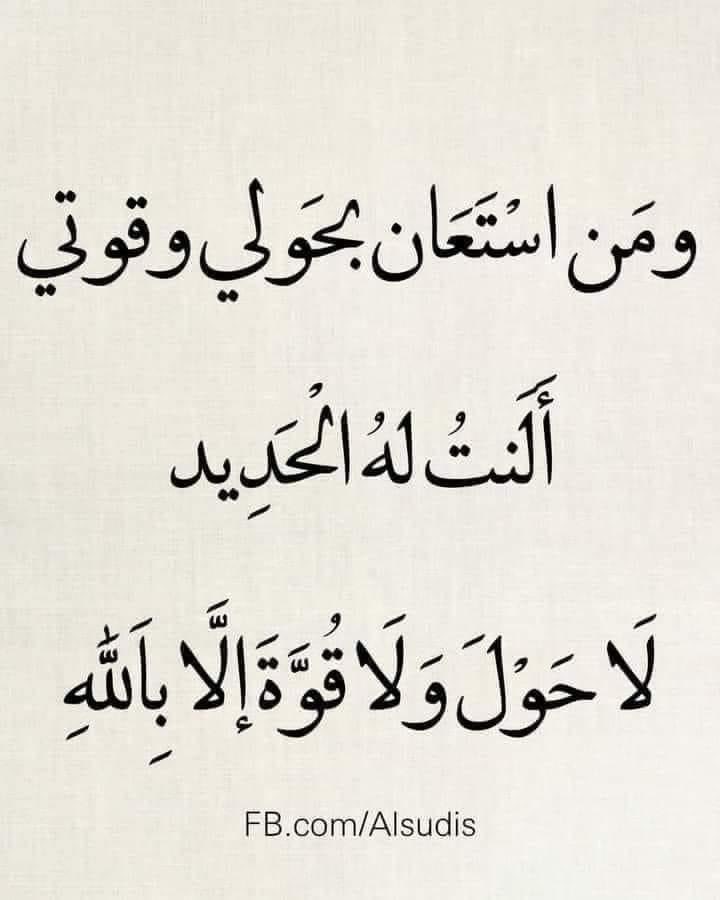 ومَن اسْتَعَان بحَولي وقوتي
أَلَنتُ لهُ الْحَدِيد
لَا حَوْلَ وَلَا قُوَّةَ إلَّا بِاَللَّهِ
FB.com/Alsudis